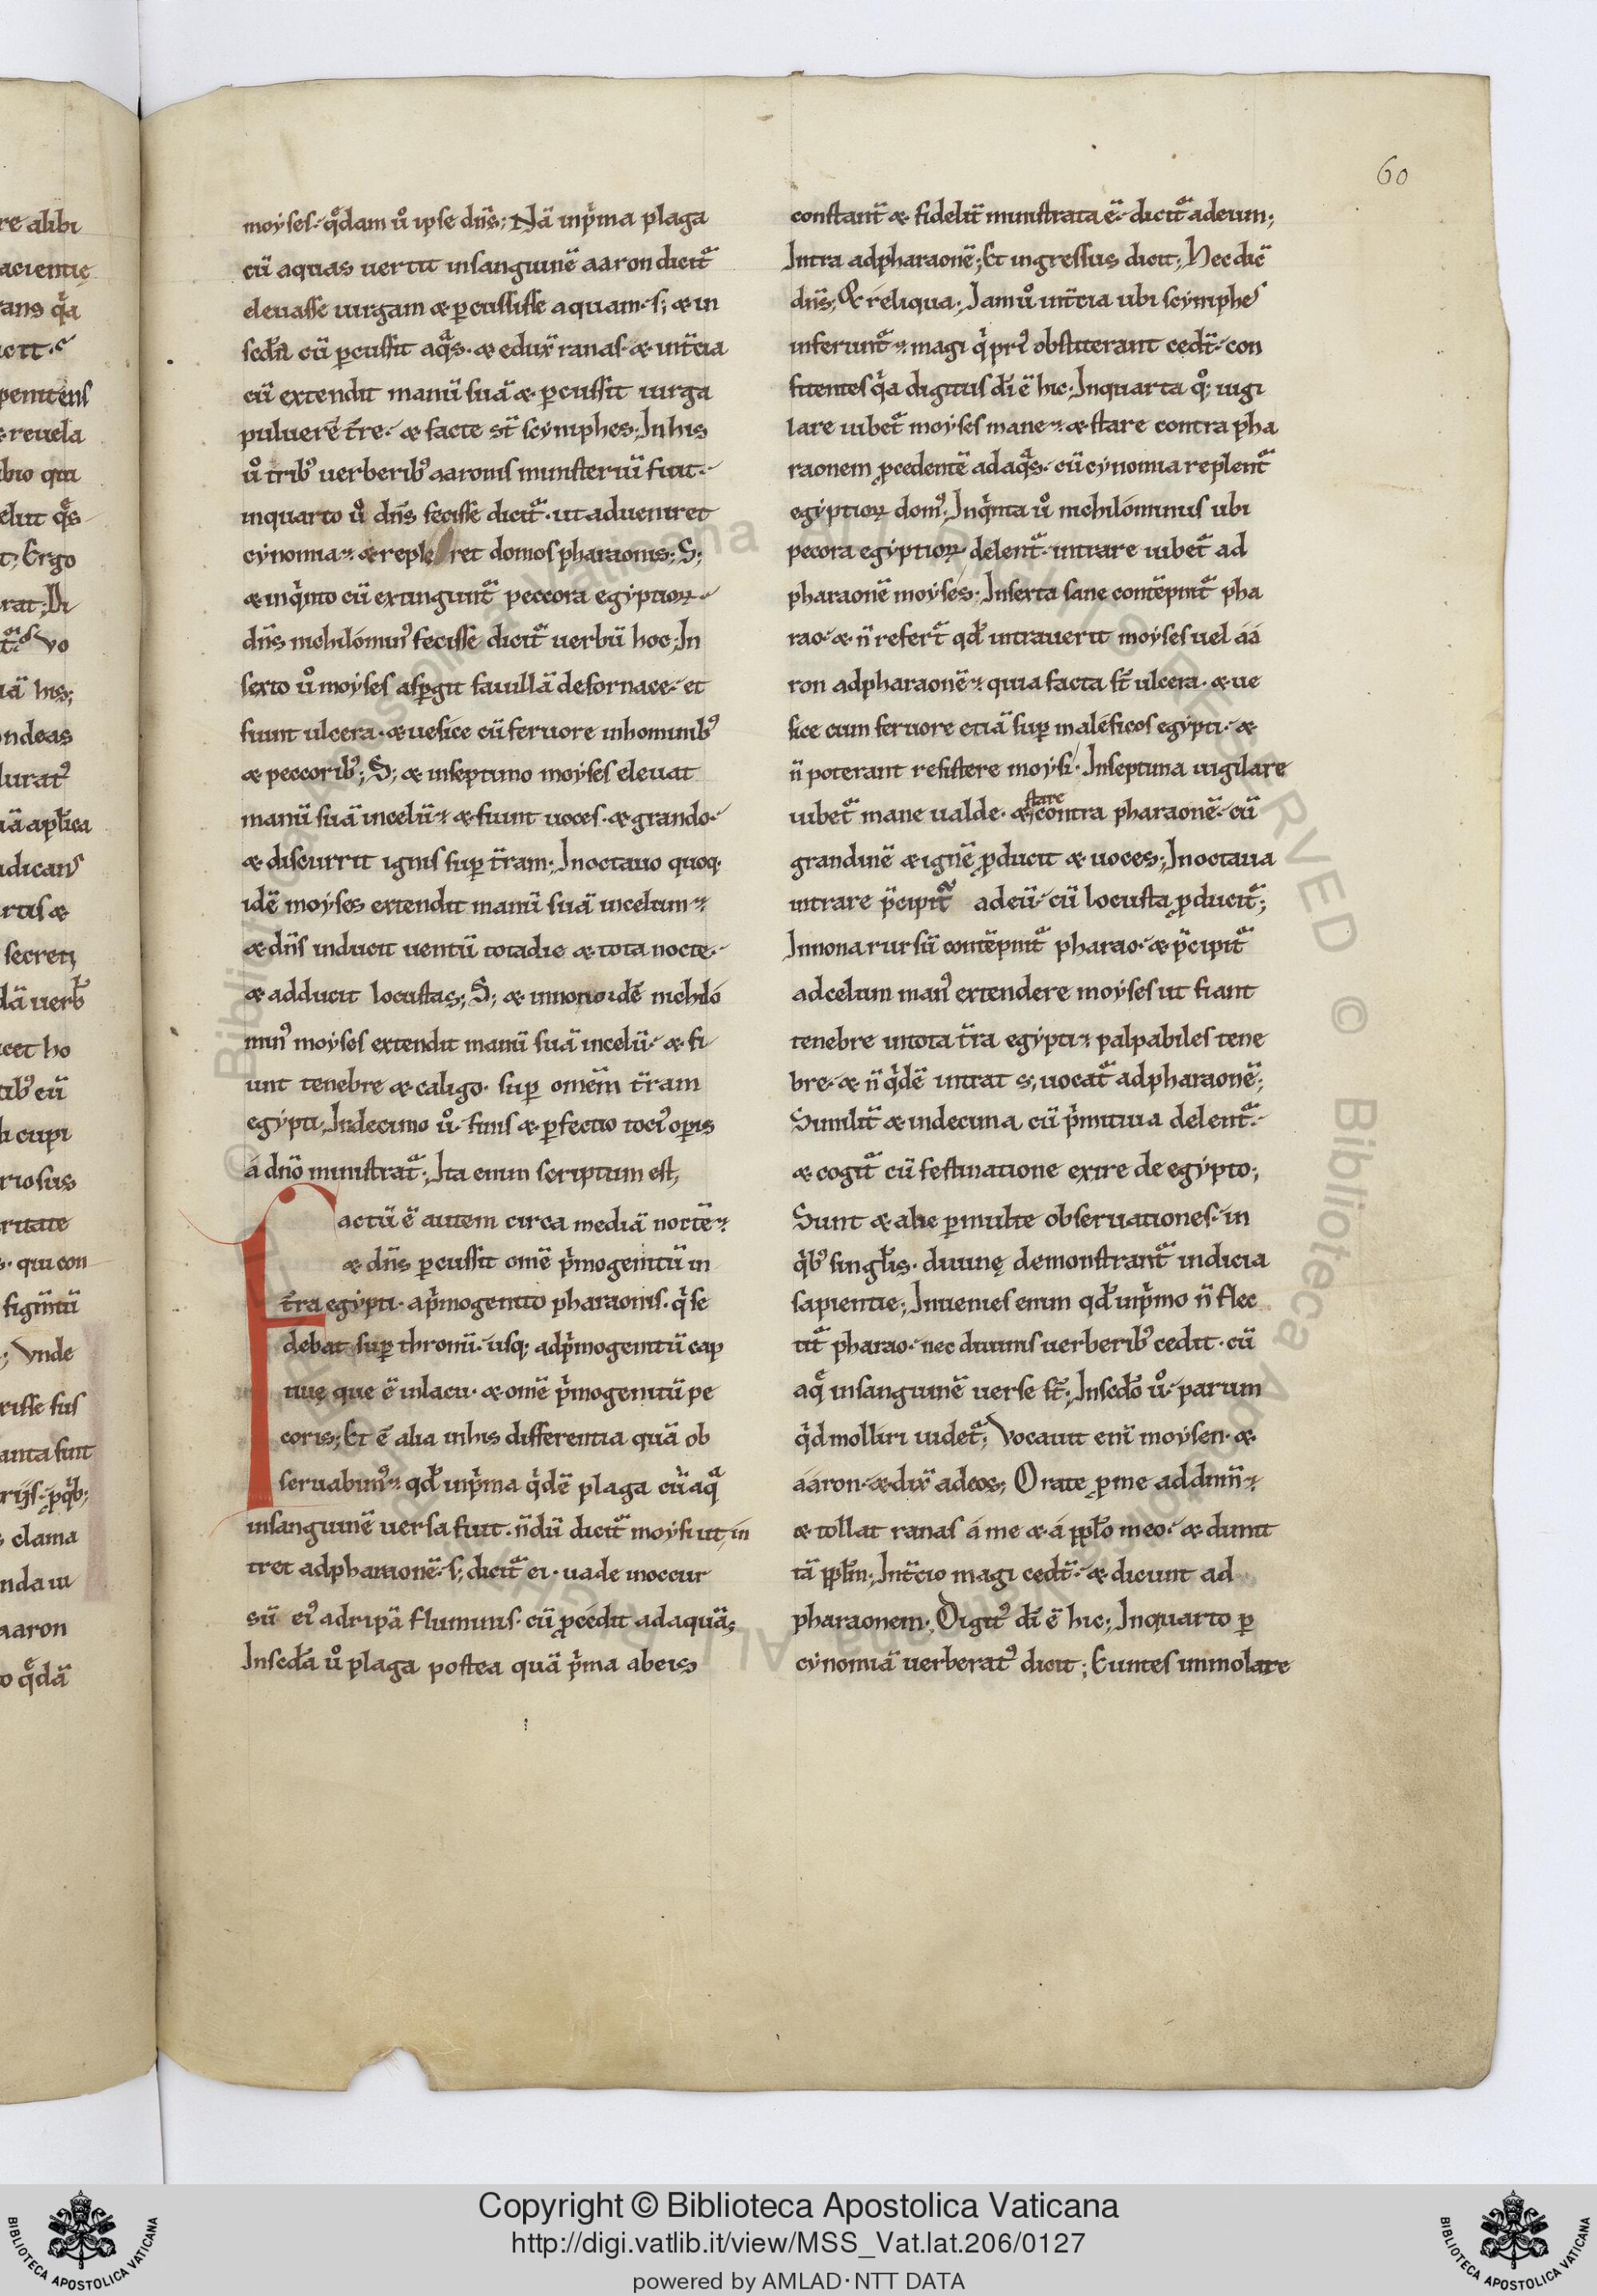 60
moyses· qͦdam uͦ ipse dn̄s; Nā inpⁱma plaga
cū aquas uertit insanguinē aaron diciťᵃ
eleuasse uirgam ⁊ ꝑcussisse aquam· s; ⁊ in
scďa cū ꝑcussit aqᵃs· ⁊ edux̄ ranas· ⁊ int̄cia
cū extendit manū suā ⁊ ꝑcussit uirga
puluerē t̄re· ⁊ facte st̄ scyniphes; Inhis
uͦ trib᾽ uerberib᾽ aaronis ministeriū fuit·
inquarto uͦ dn̄s fecisse diciťᵃ· ut adueniret
cynomia· ⁊ reple ret domos pharaonis; S;
⁊ inqⁱnto cū extinguntᵃ peccora egyptioꝝ·
dn̄s nichilómin᾽ fecisse diciťᵃ uerbū hoc; In
sexto uͦ moyses aspgit fauillā defornace· et
fiunt ulcera· ⁊ uesice cū feruore inhominib᾽
⁊ peccorib᾽; S; ⁊ inseptimo moyses eleuat
manū suā incelū· ⁊ fiunt uoces· ⁊ grando·
⁊ discurrit ignis suꝑ t̄ram; Inoctauo quoq·
idē moyses extendit manū suā incelum·
⁊ dn̄s inducit uentū totadie ⁊ tota nocte·
⁊ adducit locustas; S; ⁊ innono idē nichiló
min᾽ moyses extendit manū suā incelū· ⁊ fi
unt tenebre ⁊ caligo· suꝑ omēm t̄ram
egypti; Indecimo uͦ· finis ⁊ ꝑfectio toci᾽ oꝑis
á dn̄o ministraťᵃ; Ita enim scriptum est,
Factū ē autem circa mediā noctē·
⁊ dn̄s ꝑcussit omē pⁱmogenitū in
t̄ra egypti· apⁱmogenito pharaonis· qⁱ se
debat suꝑ thronū· usq; adpⁱmogenitū cap
tiuę que ē inlacu· ⁊ omē pⁱmogenitū pe
coris; Et ē alia inhis differentia quā ob
seruabim᾽· qď inpⁱma qⁱdē plaga cū aqᵃ
insanguinē uersa fuit· n̄dū diciťᵃ moysi ut, in
tret adpharaonē· s; diciťᵃ ei· uade inoccur
sū ei᾽ adripā fluminis· cū ꝓcedit adaquā;
Inscďa uͦ plaga postea quā pⁱma abeis
constant̄ ⁊ fidelit̄ ministrata ē· diciťᵃ adeum;
Intra adpharaonē; Et ingressus dicit; Hec dič
dn̄s; & reliqua; Iam uͦ int̄cia ubi scyniphes
inferunťᵃ· magi qⁱ pri᾽ obstiterant cedt̄· con
fitentes qⁱa digitus dī ē hic· Inquarta qͦ; uigi
lare iubeťᵃ moyses mane· ⁊ stare contra pha
raonem ꝓcedentē adaqᵃs· cū cynomia replentᵃ
egyptioꝝ dom᾽· Inqⁱnta uͦ nichilóminus ubi
pecora egyptioꝝ delentᵃ· intrare iubeťᵃ ad
pharaonē moyses· Insexta sane contēpniťᵃ pha
rao· ⁊ n̄ referťᵃ qď intrauerit moyses uel áá
ron adpharaonē· quia facta st̄ ulcera· ⁊ ue
sice cum feruore etiā suꝑ maleficos egypti· ⁊
n̄ poterant resistere moysi· Inseptima uigilare
iubeťᵃ mane ualde· ⁊ stare contra pharaonē· cū
grandinē ⁊ ignē ꝓducit ⁊ uoces; Inoctaua
intrare p̄cipiťᵃ adeū· cū locusta ꝓduciťᵃ;
Innona rursū contēpniťᵃ pharao· ⁊ p̄cipiťᵃ
adcelum man᾽ extendere moyses ut fiant
tenebre intota t̄ra egypti· palpabiles tene
bre· ⁊ n̄ qⁱdē intrat s; uocaťᵃ adpharaonē;
Similit̄ ⁊ indecima cū pⁱmitiua delentᵃ·
⁊ cogiťᵃ cū festinatione exire de egypto;
Sunt ⁊ alie ꝑmulte obseruationes· in
qⁱb᾽ singlis· diuinę demonstrantᵃ indicia
sapientie; Inuenies enim qď inpⁱmo n̄ flec
tiťᵃ pharao· nec diuinis uerberib᾽ cedit· cū
aqͤ insanguinē uerse st̄; Inscďo uͦ· parum
qⁱd molliri uideťᵃ; Vocauit enī moysen· ⁊
aaron· ⁊ dix̄ adeos; Orate ꝑme addnm̄·
⁊ tollat ranas á me ⁊ á pplo meo· ⁊ dimit
tā pplm; Int̄cio magi cedt̄· ⁊ dicunt ad
pharaonem; Digit᾽ dī ē hic; Inquarto ꝑ
cynomiā uerberat᾽ dicit; Euntes immolare
Copyright © Biblioteca Apostolica Vaticana
http://digi.vatlib.it/view/MSS_Vat.lat.206/0127
powered by AMLAD·NTT DATA